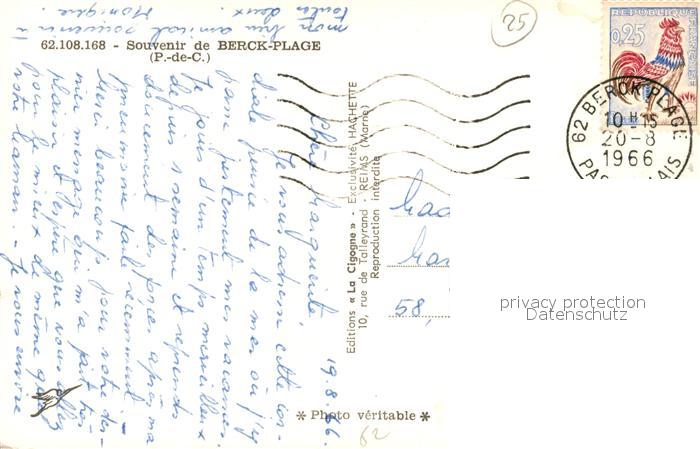 62.108.168 - Souvenir de BERCK-PLAGE
(P.-de-C.)
25
REPUBLIQUE FRANÇAISE
0,25
62 BERCK PLAGE
10 H 15
20-8
1966
PAS
AIS
Editions « La Cigogne » - Exclusivité HACHETTE
10, rue de Talleyrand - REIMS (Marne)
Reproduction interdite
19.8.66.
Chère Marguerite
Je vous adresse cette cor-
diale pensée de la mer où j'y
passe justement mes vacances.
Je jouis d'un temps merveilleux
depuis 1 semaine et reprends
doucement des forces après ma
pneumonie faite récemment
Merci beaucoup pour votre der-
nier message qui m'a fait
plaisir et j'espère que vous allez
pour le mieux de même que
votre Maman - Je vous envoie
mon amical souvenir à
toutes deux.
Monique.
58,
privacy protection
Datenschutz
* Photo véritable *
62